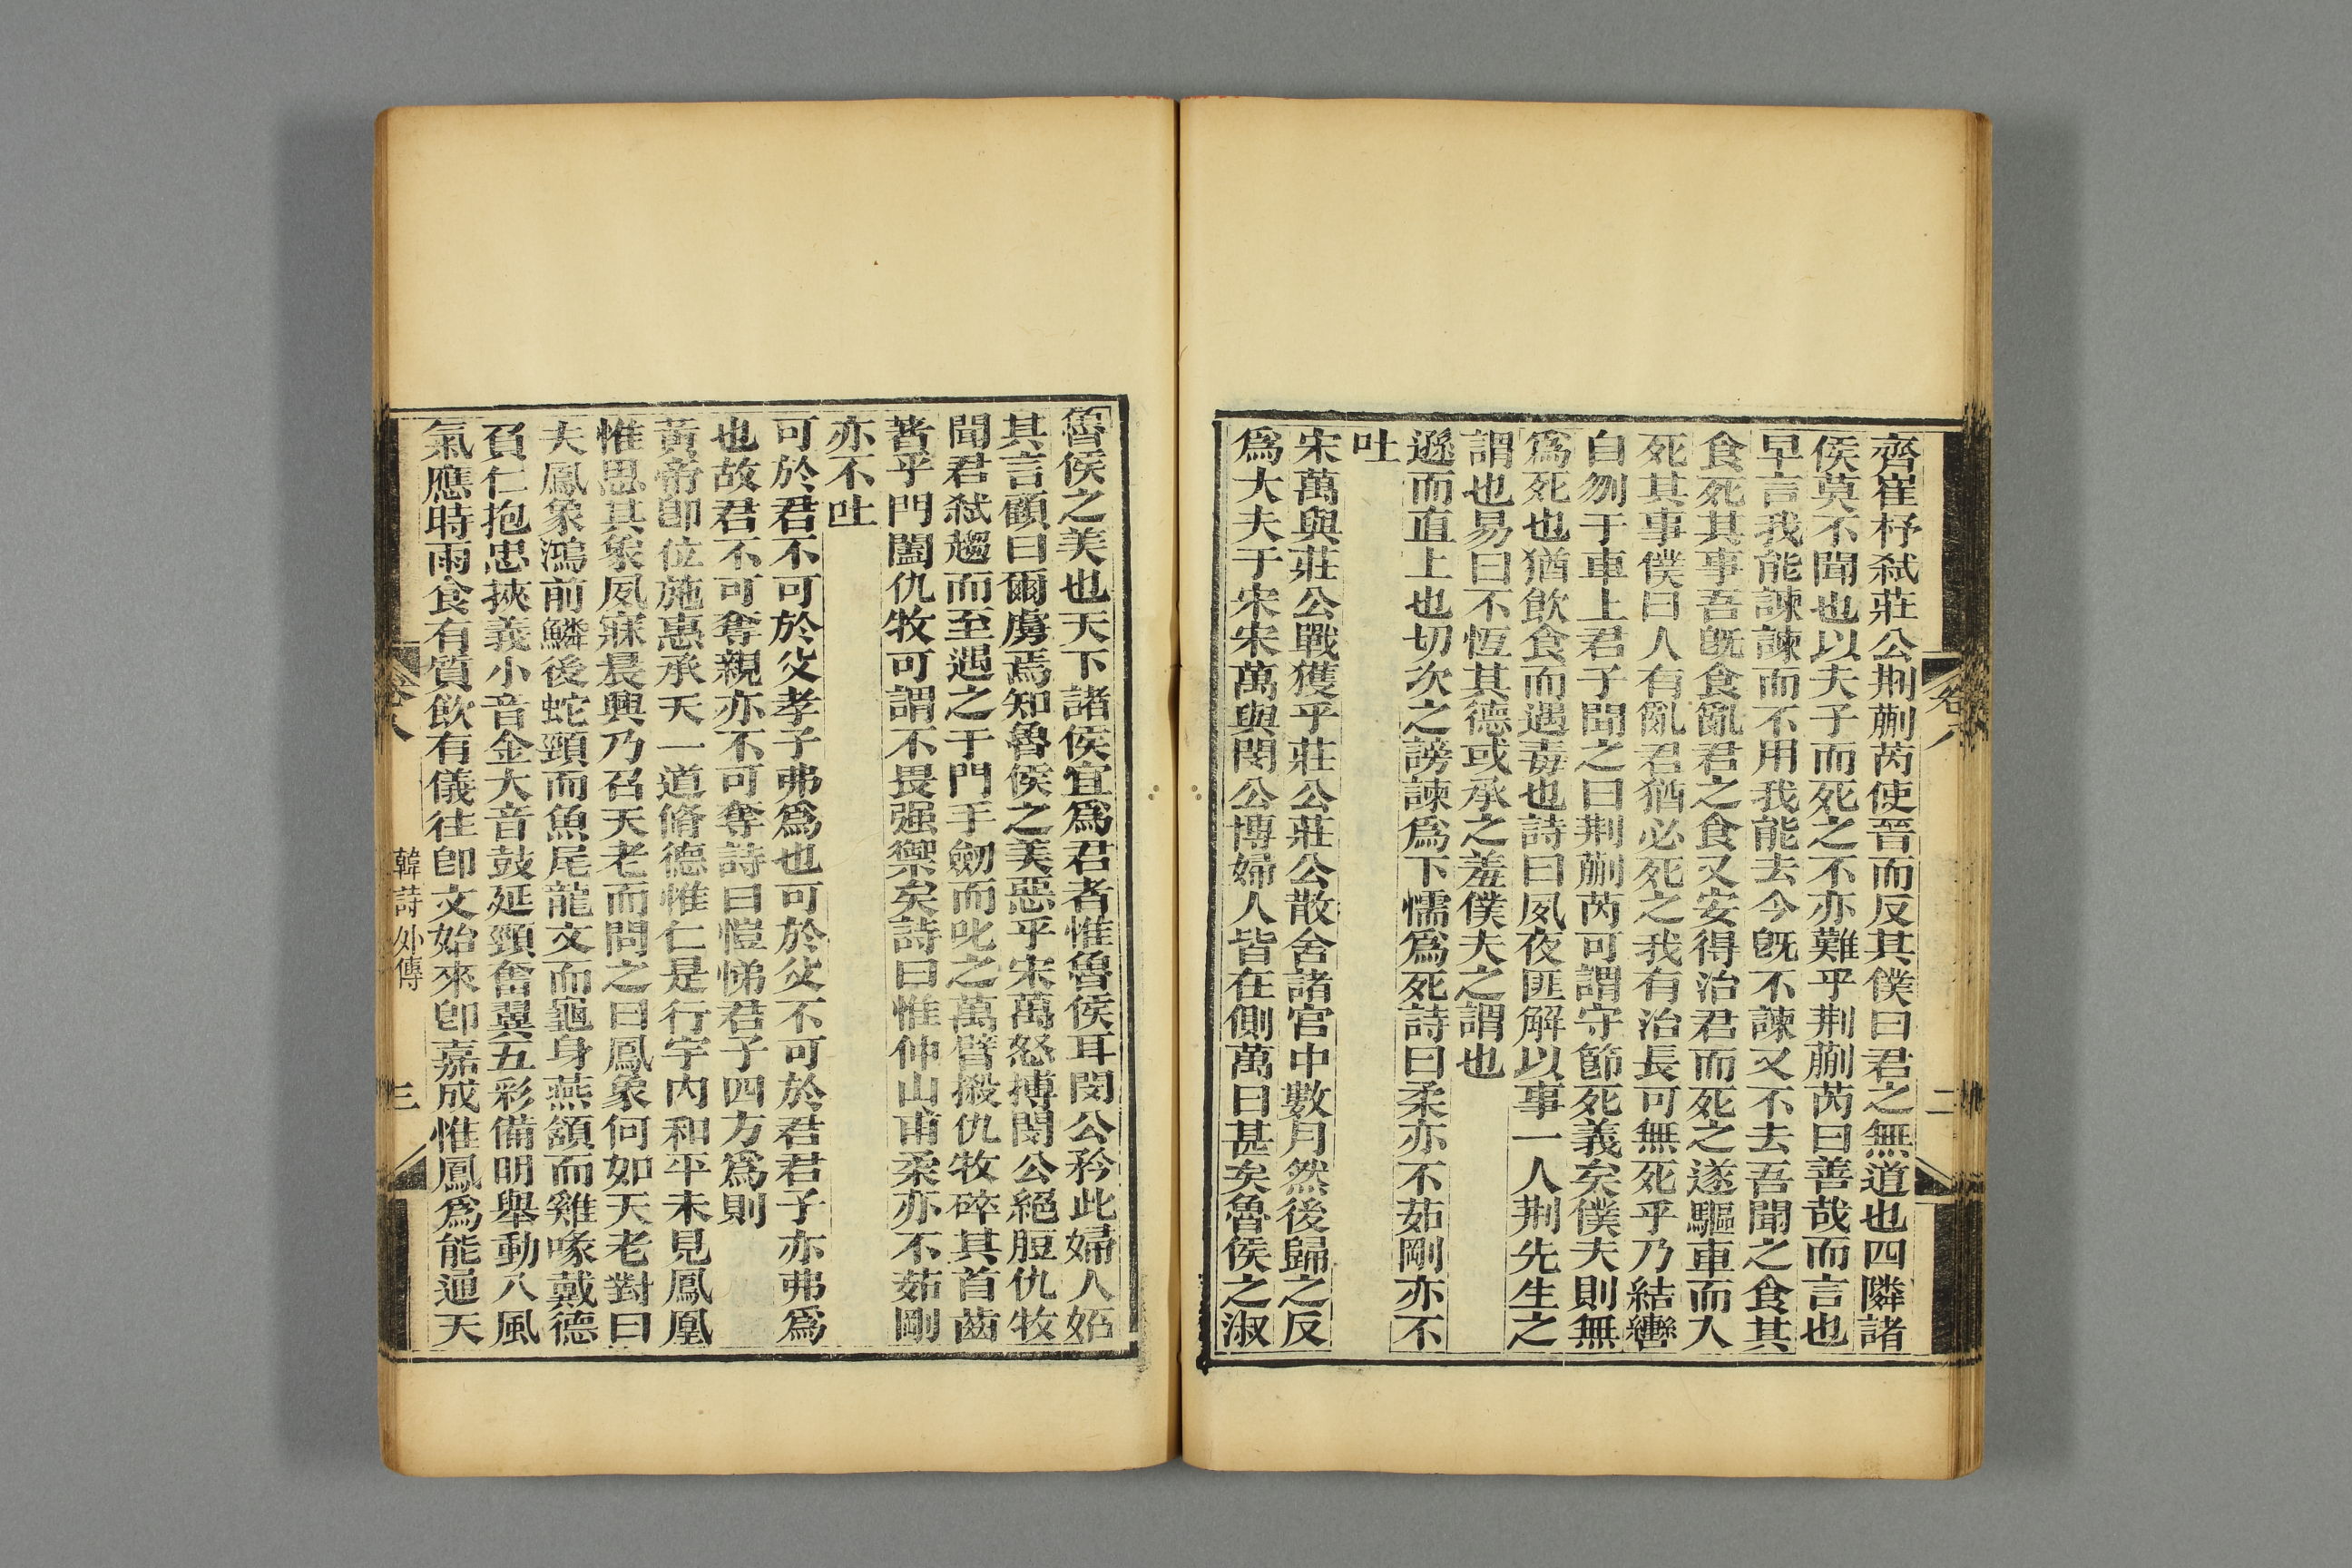 卷八
二
齊崔杼弑莊公荆蒯芮使晉而反其僕曰君之無道也四隣諸
侯莫不聞也以夫子而死之不亦難乎荆蒯芮曰善哉而言也
早言我能諫諫而不用我能去今旣不諫又不去吾聞之食其
食死其事吾旣食亂君之食又安得治君而死之遂驅車而入
死其事僕曰人有亂君猶必死之我有治長可無死乎乃結轡
自刎于車上君子聞之曰荆蒯芮可謂守節死義矣僕夫則無
爲死也猶飲食而遇毒也詩曰夙夜匪解以事一人荆先生之
謂也易曰不恆其德或承之羞僕夫之謂也
遜而直上也切次之謗諫爲下懦爲死詩曰柔亦不茹剛亦不
吐
宋萬與莊公戰獲乎莊公莊公散舍諸宮中數月然後歸之反
爲大夫于宋宋萬與閔公博婦人皆在側萬曰甚矣魯侯之淑
魯侯之美也天下諸侯宜爲君者惟魯侯耳閔公矜此婦人妬
其言顧曰爾虜焉知魯侯之美惡乎宋萬怒搏閔公絕脰仇牧
聞君弑趨而至遇之于門手劒而叱之萬臂摋仇牧碎其首齒
著乎門闔仇牧可謂不畏强禦矣詩曰惟仲山甫柔亦不茹剛
亦不吐
可於君不可於父孝子弗爲也可於父不可於君君子亦弗爲
也故君不可奪親亦不可奪詩曰愷悌君子四方爲則
黃帝卽位施惠承天一道脩德惟仁是行宇內和平未見鳳凰
惟思其象夙寐晨興乃召天老而問之曰鳳象何如天老對曰
夫鳳象鴻前鱗後蛇頸而魚尾龍文而龜身燕頷而雞喙戴德
負仁抱忠挾義小音金大音鼓延頸奮翼五彩備明舉動八風
氣應時雨食有質飲有儀往卽文始來卽嘉成惟鳳爲能通天
卷八
韓詩外傳
三